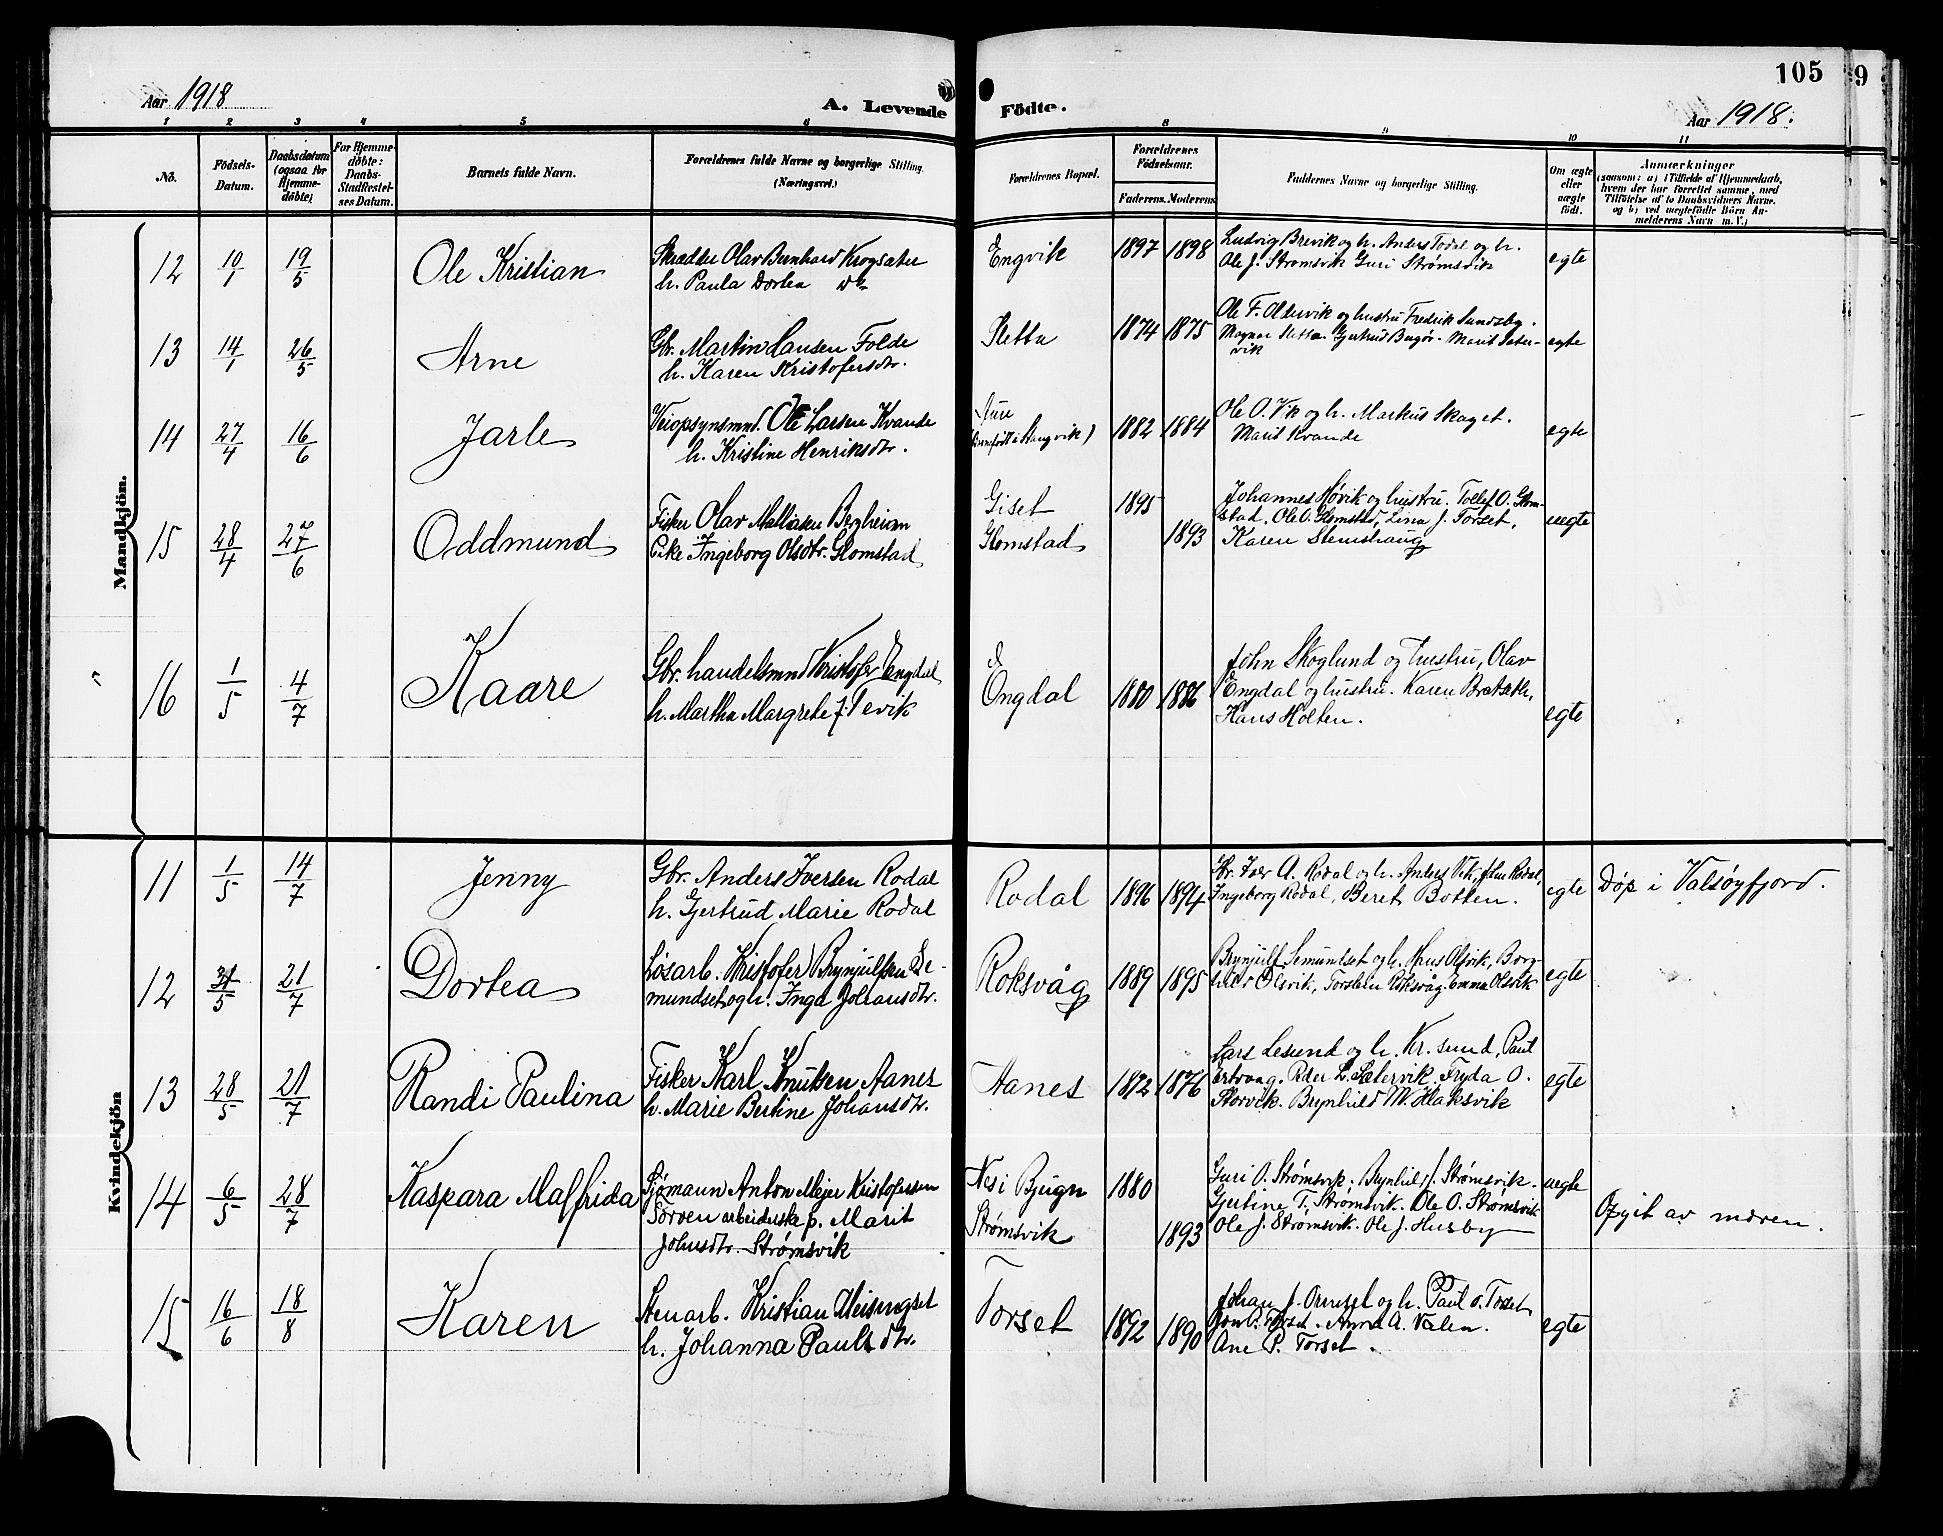 Aar 1918
A. Levende
Födte.
105
9
Aar 1918.
1 2 3 4 5 6 8 9 10 11
No.
Födsels-
Datum.
Daabsdatum
(ogsaa for
Hjemme-
döbte)
For Hjemme-
döbte:
Daabs-
Stadfæstel-
ses Datum.
Barnets fulde Navn.
Forældrenes fulde Navne og borgerlige Stilling.
(Næringsvei.)
Forældrenes Bopæl.
Forældrenes
Födselsaar.
Faderens. Moderens
Faddernes Navne og borgerlige Stilling.
Om ægte
eller
uægte
födt.
Anmærkninger
(saasom: a) i Tilfælde af Hjemmedaab,
hvem der har forrettet samme, med
Tilföielse af to Daabsvidners Navne.
og b) ved uægtefödte Börn An-
melderens Navn m. V.)
Mandkjön.
12 10/1 19/5 Ole Kristian
Skrædder Olav Bernhard Krogsæter
h. Paula Dortea
Engvik 1897 1898
Ludvig Brevik og h. Anders Todal og h.
Ole J. Strømsvik Guri Strømsvik
egte
13 14/1 26/5 Arne
Gbr. Martin Hansen Folde
h. Karen Kristofersdtr.
Sletta 1874 1875
Ole F. Oldervik og hustru Fredrik Sundsby.
Magnar Sletta. Gjertrud Bugör. Marit Sæter-
vik
egte
14 27/4 16/6 Jarle
Veiopsynsmnd. Ole Larsen Kvande
h. Kristine Henriksdtr.
Aure
1882 1884
Ole O. Vik og h. Markus Skaget.
Marit Kvande
egte
15 28/4 27/6 Oddmund
Fisker Olav Mathiasen Bergheim
Pike Ingeborg Olsdtr. Glomstad
Giset 1895
Glomstad 1893
Johannes Høvik og hustru. Tollef O. Glom-
stad. Ole O. Glomstad, Lina J. Torset,
Karen Stenshaug
uegte
16 1/5 4/7 Kaare
Gbr. handelsmnd Kristofer Engdal
h. Martha Margrethe J. Tevik
Engdal 1880 1886
John Skoglund og hustru, Olav
Engdal og hustru. Karen Bratseth,
Hans Holten.
egte
Kvindekjön
11 1/5 14/7 Jenny
Gbr. Anders Iversen Rodal
h. Gjertrud Marie Rodal
Rodal 1896 1894
Gbr. Iver A. Rodal og h. Anders Vik, John Rodal,
Ingeborg Rodal, Beret Botten.
egte Døp i Valsøyfjord.
12 31/5 21/7 Dortea
Løsarb. Kristofer Brynjulfsen Se-
mundset og h. Inga Johansdtr.
Roksvåg 1889 1895
Brynjulf Semundset og h. Hans Olsvik, Borg-
hild Olsvik, Torstein Roksvåg. Emma Olsvik
egte
13 28/5 21/7 Randi Paulina
Fisker Karl Knutsen Aanes
h. Marie Bertine Johansdtr.
Aanes 1872 1876
Lars Lesund og h. Kr.sund, Paul
Ertvaag. Peder L. Sætervik. Fryda O.
Storvik. Brynhild M. Haksvik
egte
14 6/5 28/7 Kaspara Malfrida
Sjømann Anton Mejer Kristofersen
Sörven arbeiderske p. Marit
Johnsdtr. Strømsvik
Nes i Bjugn 1880
Strømsvik 1893
Guri O. Strømsvik. Brynhild J. Strømsvik.
Gjertine T. Strømsvik. Ole O. Strømsvik
Ole J. Strømsvik. Ole J. Husby
uegte
Opgit av moren.
15 16/6 18/8 Karen
Stenarb. Kristian Meisingset
h. Johanna Paulsdtr.
Torset 1892 1890
Johan J. Ormset og h. Paul O. Torset
Jon P. Torset. Anna A. Valen.
Ane P. Torset.
egte